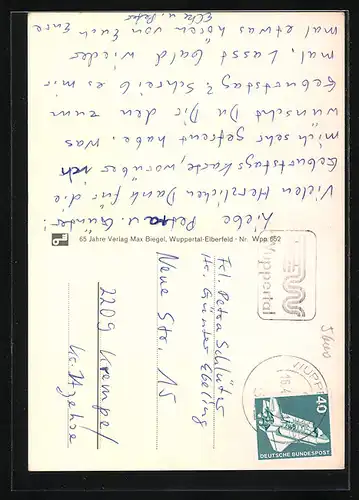 Liebe Petra u. Günter
Vielen Herzlichen Dank für die
Geburtstagskarte, worüber ich
mich sehr gefreut habe. Was
wünscht Du Dir den zum
Geburtstag? Schreib es mir
mal. Lasst bald wieder
mal etwas hören von Euch Eure
Elke u. Peter
65 Jahre Verlag Max Biegel, Wuppertal-Elberfeld - Nr. Wpp 652
Wuppertal
WUPP
40
DEUTSCHE BUNDESPOST
Frl. Petra Schlüter
Hr. Günter Ebeling
Neue Str. 15
2209 Krempe/
Kr. Itzehoe